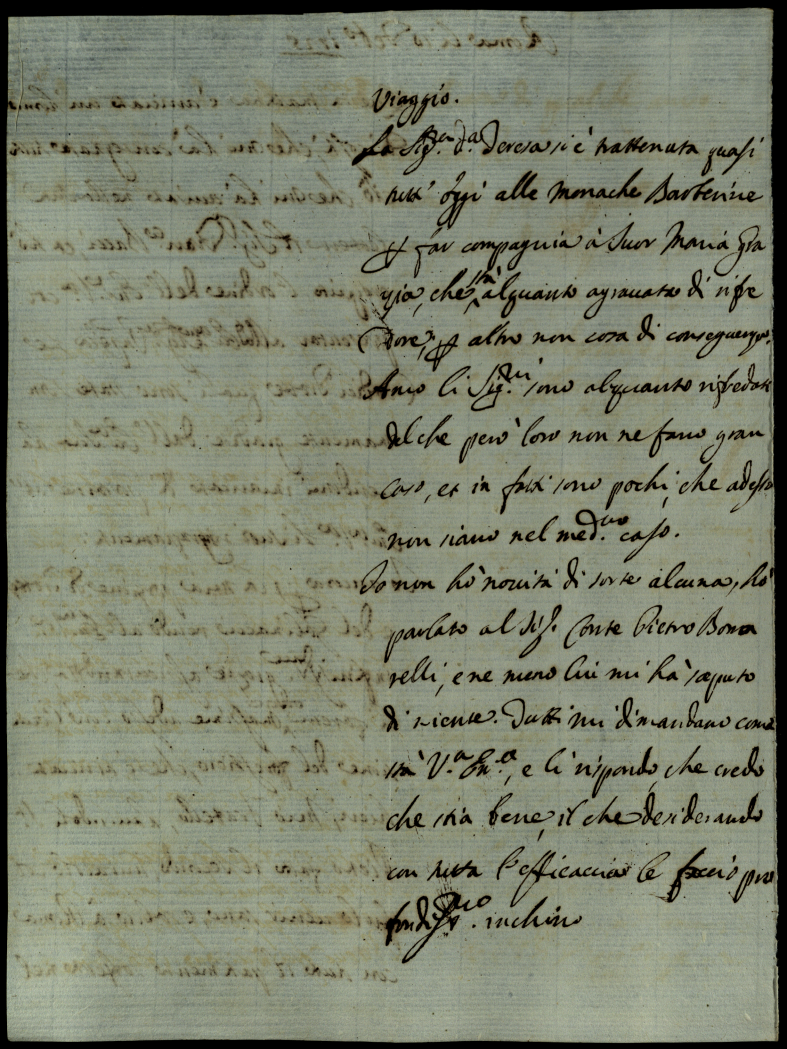 Viaggio.
La Sig.ra d.a Teresa si è trattenuta quasi
tutt' oggi alle Monache Barberine
p far compagnia à Suor Maria Gra
zia, che stà alquanto agravata di rifre
dore, p altro non cosa di conseguenza.
Anco li Sig.ri sono alquanto rifredati
del che però loro non ne fano gran
caso, et in fatti sono pochi, che adesso
non siano nel med.mo caso.
Io non hò novità di sorte alcuna, hò
parlato al Sig.r Conte Pietro Bona
relli, e ne meno lui mi hà saputo
di niente. Tutti mi dimandano come
stà V.a Em.za, e li rispondo, che credo
che stia bene, il che desiderando
con tutta l'efficaccia le faccio pro
fondiss.mo inchino